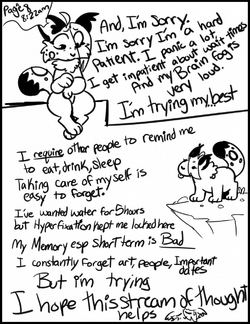 Page 3
8:22am
And, I'm Sorry.
I'm Sorry I'm a hard
Patient. I panic a lot.
I get inpatient about wait times
And my Brain fog is
very loud.
I'm trying my best
I require other people to remind me
to eat, drink, sleep
Taking care of myself is
easy to forget.
I've wanted water for 5 hours
but Hyperfixation kept me locked here
My Memory esp Short term is Bad
I constantly Forget art, people, Important dates
But i'm trying
I hope this stream of thought
helps